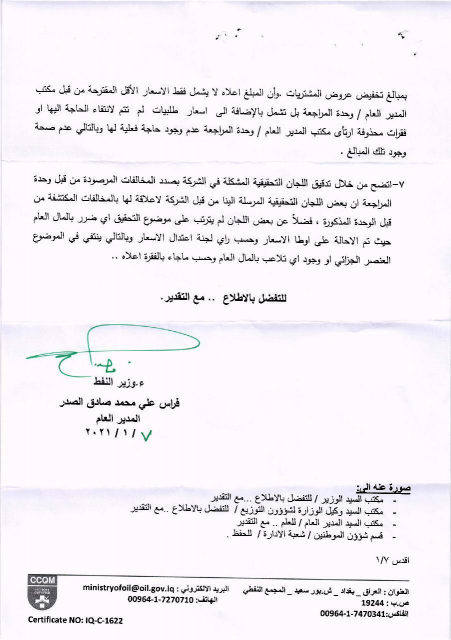 بمبالغ تخفيض عروض المشتريات .وأن المبلغ اعلاه لا يشمل فقط الاسعار الأقل المقترحة من قبل مكتب
المدير العام / وحدة المراجعة بل تشمل بالإضافة الى اسعار طلبيات لم تتم لانتفاء الحاجة اليها او
فقرات محذوفة ارتأى مكتب المدير العام / وحدة المراجعة عدم وجود حاجة فعلية لها وبالتالي عدم صحة
وجود تلك المبالغ .
٧-اتضح من خلال تدقيق اللجان التحقيقية المشكلة في الشركة بصدد المخالفات المرصودة من قبل وحدة
المراجعة ان بعض اللجان التحقيقية المرسلة الينا من قبل الشركة لاعلاقة لها بالمخالفات المكتشفة من
قبل الوحدة المذكورة ، فضلاً عن بعض اللجان لم يترتب على موضوع التحقيق اي ضرر بالمال العام
حيث تم الاحالة على اوطأ الاسعار وحسب راي لجنة اعتدال الاسعار وبالتالي ينتفي في الموضوع
العنصر الجزائي او وجود اي تلاعب بالمال العام وحسب ماجاء بالفقرة اعلاه ..
للتفضل بالاطلاع .. مع التقدير.
ء.وزير النفط
فراس علي محمد صادق الصدر
المدير العام
٢٠٢١/١/٧
صورة عنه الى:
- مكتب السيد الوزير / للتفضل بالاطلاع ...مع التقدير
- مكتب السيد وكيل الوزارة لشؤوون التوزيع / للتفضل بالاطلاع ..مع التقدير
- مكتب السيد المدير العام / للعلم .. مع التقدير
- قسم شؤون الموظتين / شعبة الادارة / للحفظ .
اقدس ١/٧
العنوان : العراق _ بغداد _ ش.بور سعيد _ المجمع النفطي
ص.ب : 19244
الفاكس:7470341-1-00964
البريد الالكتروني : ministryofoil@oil.gov.iq
الهاتف: 7270710-1-00964
CCQM
Certificate NO: IQ-C-1622